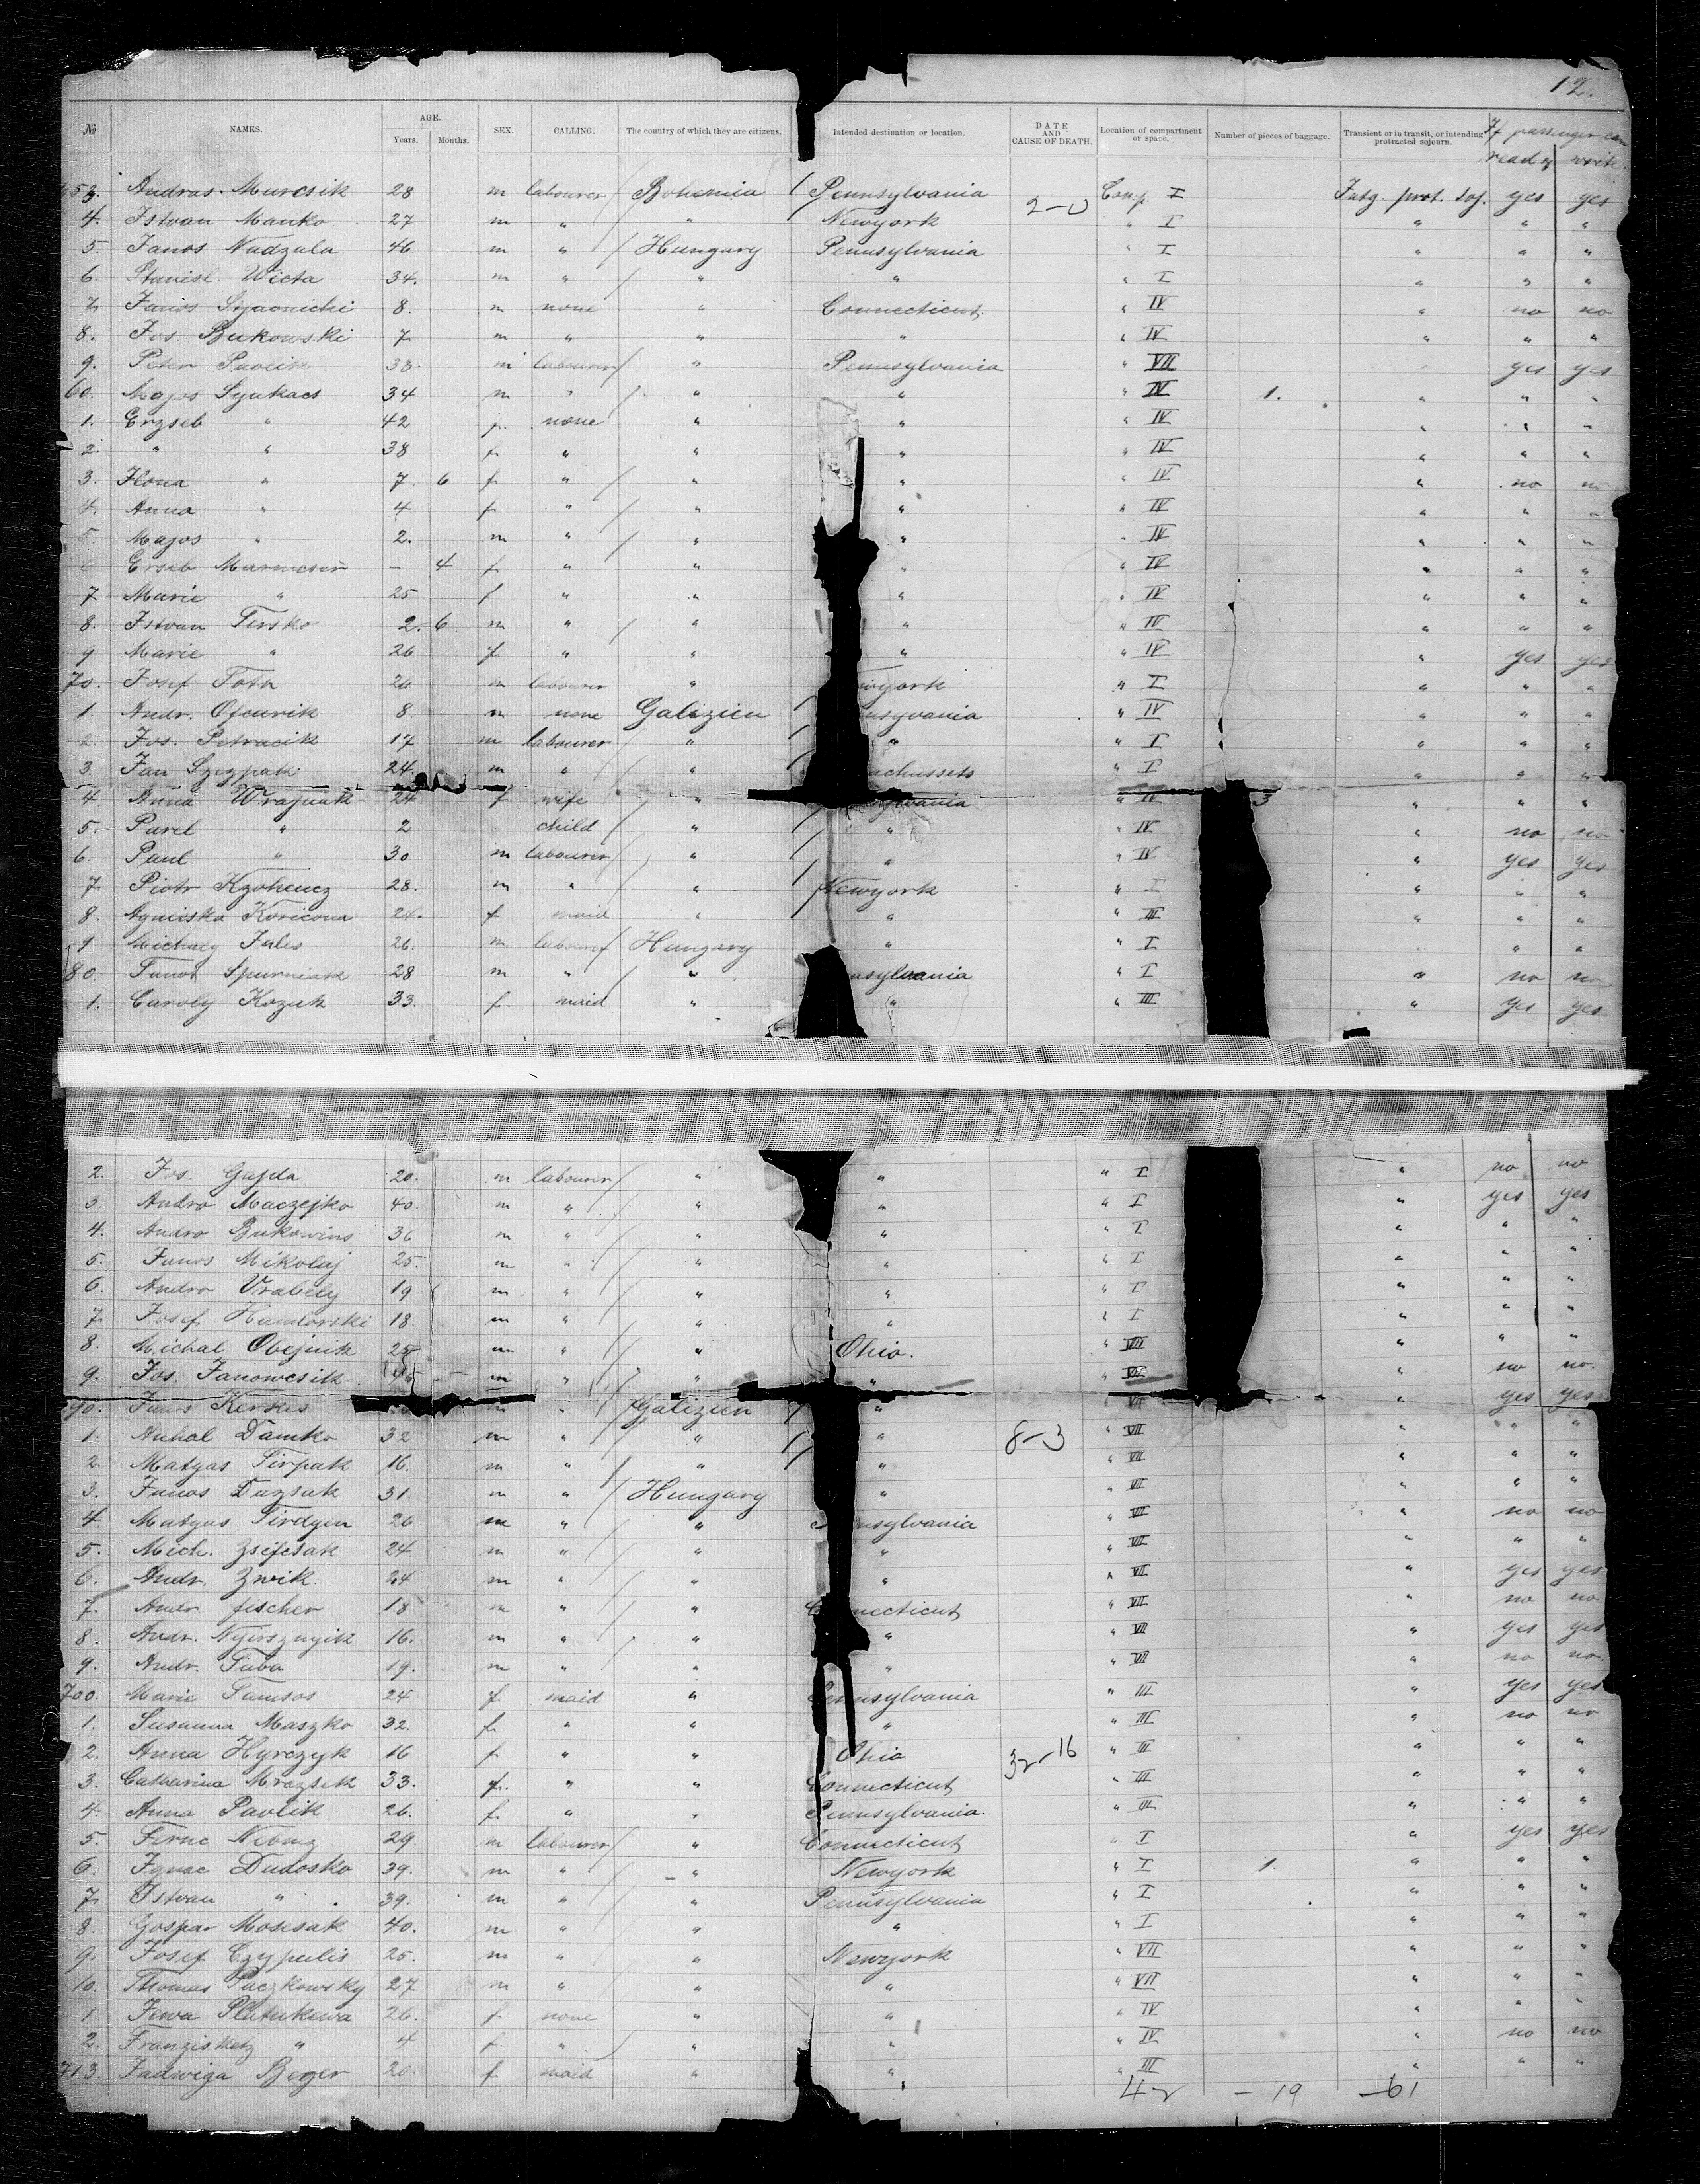 12.
№ NAMES. AGE. Years. Months. SEX. CALLING. The country of which they are citizens. Intended destination or location. DATE AND CAUSE OF DEATH. Location of compartment or space. Number of pieces of baggage. Transient or in transit, or intending protracted sojourn. If passenger can read & write.
653. Andras Murcsik 28 m labourer Bohemia Pennsylvania 2-0 Comp. I Intg. prot. soj. yes yes
4. Istvan Manko 27 m " " Newyork " I " " "
5. Janos Nadzula 46 m " Hungary Pennsylvania " I " " "
6. Stanisl. Wicta 34. m " " " " I " " "
7. Janos 8. m none " Connecticut " IV " no no
8. Jos. Bukowski 7 m " " " " IV " " "
9. Peter Pavlik 33. m labourer " Pennsylvania " VII yes yes
60. Majos Synkacs 34 m " " " " IV 1. " " "
1. Erzseb " 42 f. none " " " IV " " "
2. " " 38 f. " " " " IV " " "
3. Ilona " 7 6 f " " " " IV " no no
4. Anna " 4 f " " " " IV " " "
5. Majos " 2. m " " " " IV " " "
6 Erseb - 4 f " " " " IV " " "
7 Marie " 25 f " " " " IV " " "
8. Istvan Tirsko 2. 6 m " " " " IV " " "
9 Marie " 26 f " " " " IV " yes yes
70. Josef Toth 26 m labourer " york " I " " "
1. Andr. Ofcarik 8 m none Galizien nsyvania " IV " " "
2. Jos. Petracik 17 m labourer " " " I " " "
3. Jan Szczpak 24. m " " achussets " I " " "
4. Anna Wrajnak 24 f wife " sylvania " IV 3 " " "
5. Pavel " 2 child " " " IV " no no
6. Paul " 30 m labourer " " " IV " yes yes
7 Piotr 28. m " " Newyork " I " " "
8. Agnieska Koricona 24. f maid " " " III " " "
9 Michaly Jules 26. m labourer Hungary " " I " "
80. Janos Spurniak 28 m " " nsylvania " I " no no
1. Caroly Kozak 33. f. maid " " " III " yes yes
2. Jos. Gajda 20. m labourer " " " I " no no
3. Andro Maczejko 40. m " " " " I " yes yes
4. Andro Bukowins 36 m " " " " I " " "
5. Janos Mikolaj 25. m " " " " I " " "
6. Andro Vrabely 19 m " " " " I " " "
7. Josef Hamlorski 18. m " " " " I " " "
8. Michal Obejnik 25 m " " Ohio. " VII " " "
9. Jos. Janowcsik 45 m " " " " VII " no no.
90. Janos Kerkes m " Galizien " " VII " yes yes
1. Damko 32 m " " " 8-3 " VII " " "
2. Matyas Sirpak 16. m " " " " VII " " "
3. Janos Duzsak 31. m " Hungary " " VII " " "
4. Matyas Tirdyen 26 m " " nsylvania " VII " no no
5. Mich. Zsifcsak 24 m " " " " VII " " "
6. Andr. Zwik. 24 m " " " " VII " yes yes
7. Andr. fischer 18 m " " Connecticut " VII " no no
8. Andr. Nyirsznyik 16. m " " " " VII " yes yes
9. Andr. Tuba 19. m " " " " VII " no no.
700. Marie Samsos 24 f. maid " Pennsylvania " III " yes yes
1. Susanna Maszko 32. f. " " " " III " no no
2. Anna Hyrczyk 16 f " " Ohio 32-16 " III " " "
3. Catharina Mrazsek 33. f. " " Connecticut " III " " "
4. Anna Pavlik 26. f. " " Pennsylvania. " III " " "
5. Ferne 29. m labourer " Connecticut " I " yes yes
6. Ignac Dudosko 39. m " " Newyork " I 1. " " "
7. Istvan " 39. m " " Pennsylvania " I " " "
8. Gospar Mosesak 40. m " " " " I " " "
9. Josef Czypulis 25. m " " Newyork " VII " " "
10. Thomas Paczkowsky 27 m " " " " VII " " "
1. Jewa 26. f. none " " " IV " " "
2. Franzisketz " 4 f. " " " " IV " no no
713. Jadwiga Beger 20. f maid " " " III " " "
42 - 19 - 61